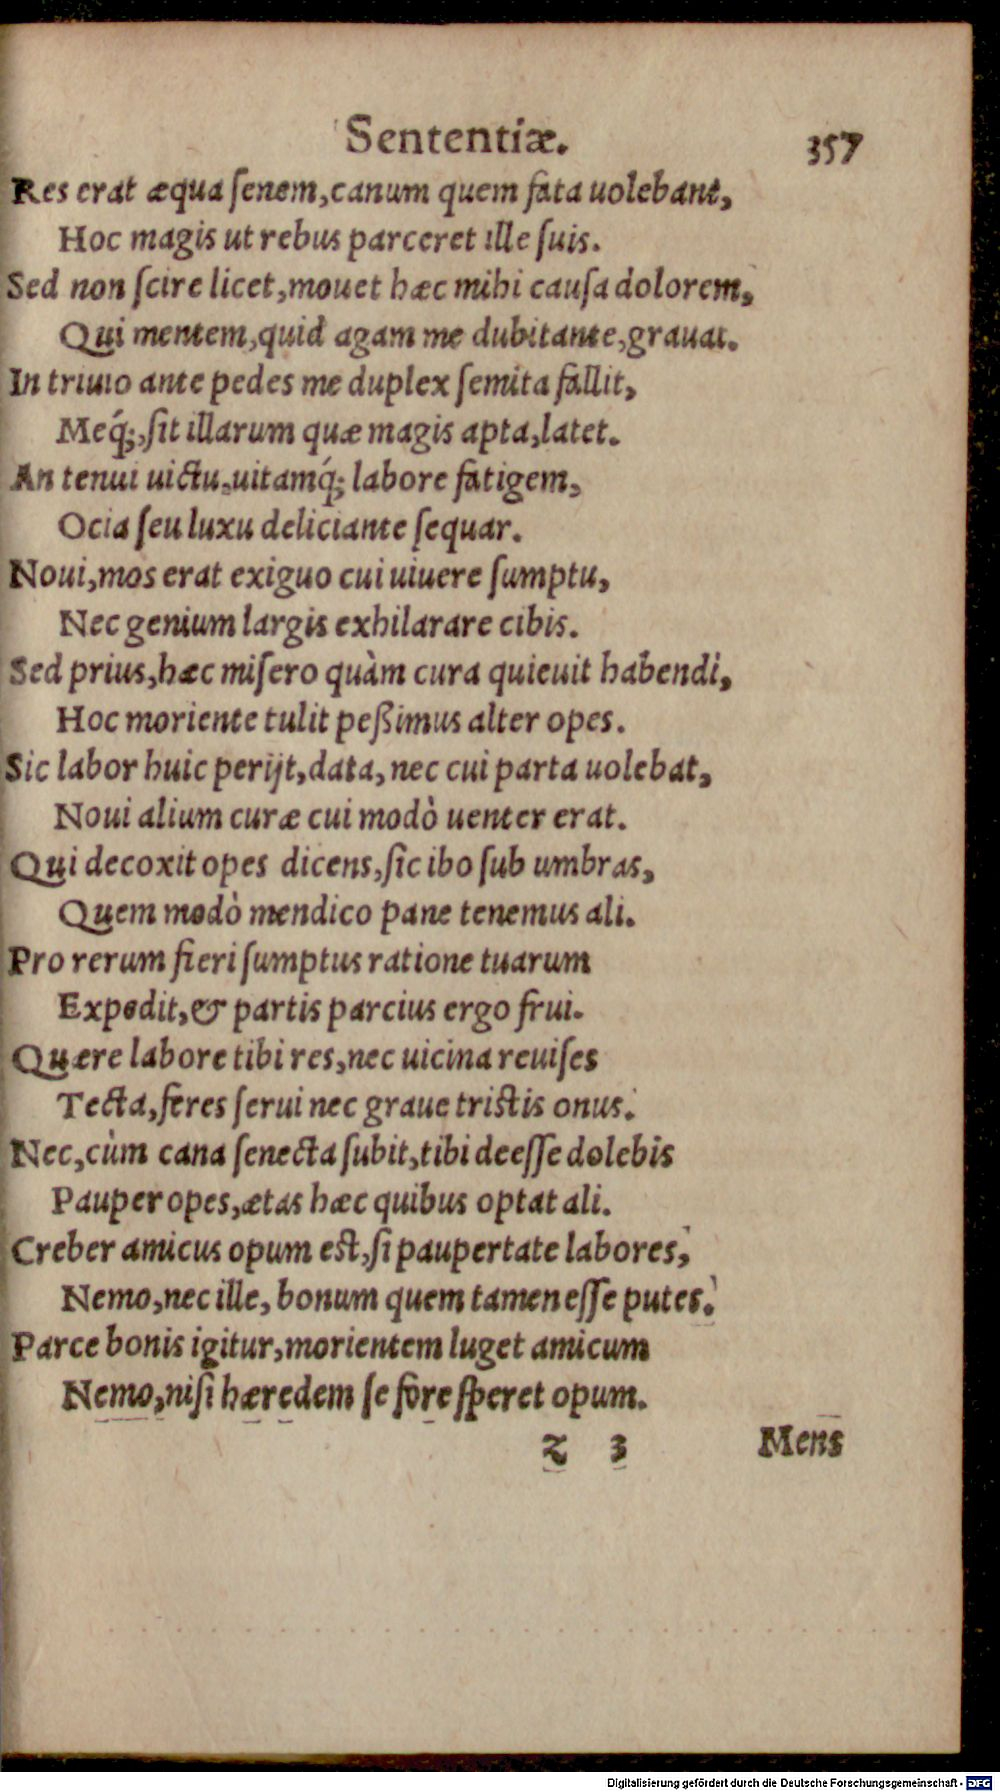 Sententiæ. 357
Res erat æqua ſenem,canum quem fata uolebant,
Hoc magis ut rebus parceret ille ſuis.
Sed non ſcire licet,mouet hæc mihi cauſa dolorem,
Qui mentem,quid agam me dubitante,grauat.
In triuio ante pedes me duplex ſemita fallit,
Meq́;,ſit illarum quæ magis apta,latet.
An tenui uictu,uitamq́; labore fatigem,
Ocia ſeu luxu deliciante ſequar.
Noui,mos erat exiguo cui uiuere ſumptu,
Nec genium largis exhilarare cibis.
Sed prius,hæc miſero quàm cura quieuit habendi,
Hoc moriente tulit peßimus alter opes.
Sic labor huic perijt,data, nec cui parta uolebat,
Noui alium curæ cui modò uenter erat.
Qui decoxit opes dicens,ſic ibo ſub umbras,
Quem modò mendico pane tenemus ali.
Pro rerum fieri ſumptus ratione tuarum
Expedit,& partis parcius ergo frui.
Quære labore tibi res,nec uicina reuiſes
Tecta,feres ſerui nec graue triſtis onus.
Nec,cùm cana ſenecta ſubit,tibi deeſſe dolebis
Pauper opes,ætas hæc quibus optat ali.
Creber amicus opum eſt,ſi paupertate labores,
Nemo,nec ille, bonum quem tamen eſſe putes.
Parce bonis igitur,morientem luget amicum
Nemo,niſi hæredem ſe fore ſperet opum.
z 3 Mens
Digitalisierung gefördert durch die Deutsche Forschungsgemeinschaft - DFG